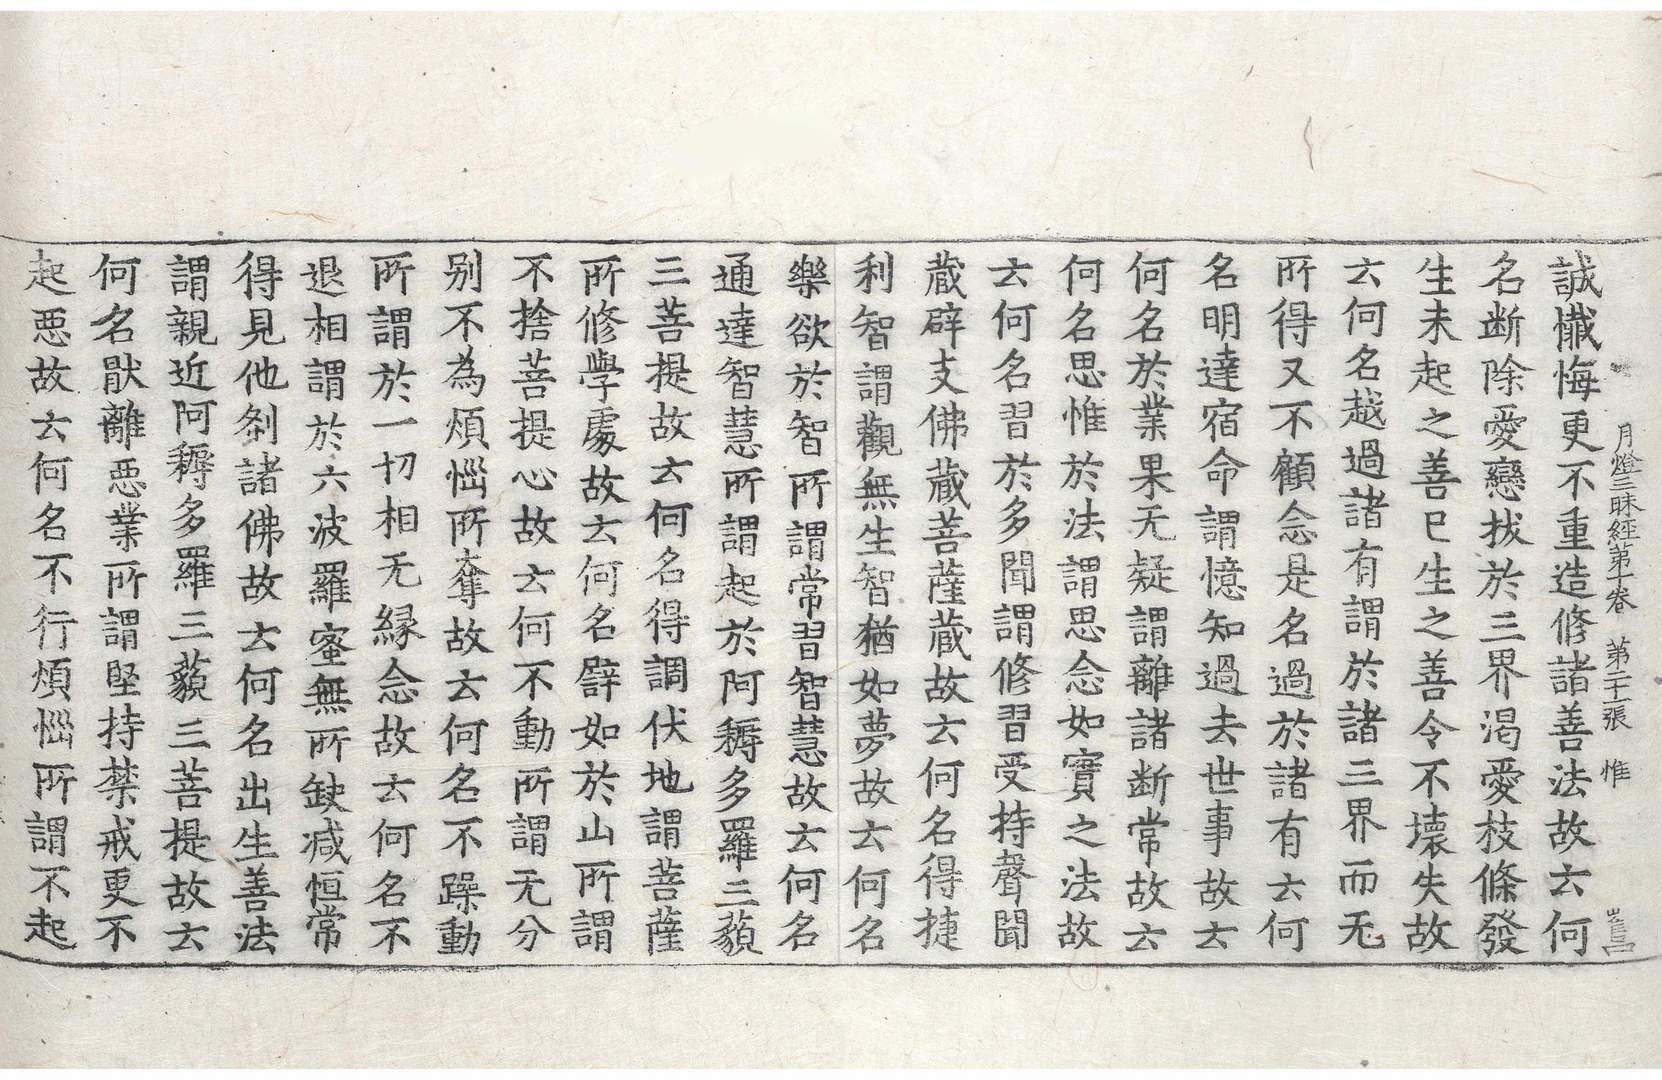 月燈三昧經第十卷　第二十二張　惟
誠懺悔更不重造修諸善法故云何
名斷除愛戀拔於三界渴愛枝條發
生未起之善已生之善令不壞失故
云何名越過諸有謂於諸三界而无
所得又不顧念是名過於諸有云何
名明達宿命謂憶知過去世事故云
何名於業果无疑謂離諸断常故云
何名思惟於法謂思念如實之法故
云何名習於多聞謂修習受持聲聞
藏辟支佛藏菩薩藏故云何名得捷
利智謂觀無生智猶如夢故云何名
樂欲於智所謂常習智慧故云何名
通達智慧所謂起於阿耨多羅三藐
三菩提故云何名得調伏地謂菩薩
所修學處故云何名譬如於山所謂
不捨菩提心故云何不動所謂无分
别不為煩惱所奪故云何名不躁動
所謂於一切相无緣念故云何名不
退相謂於六波羅蜜無所缺减恒常
得見他刹諸佛故云何名出生善法
謂親近阿耨多羅三藐三菩提故云
何名猒離惡業所謂堅持禁戒更不
起惡故云何名不行煩惱所謂不起